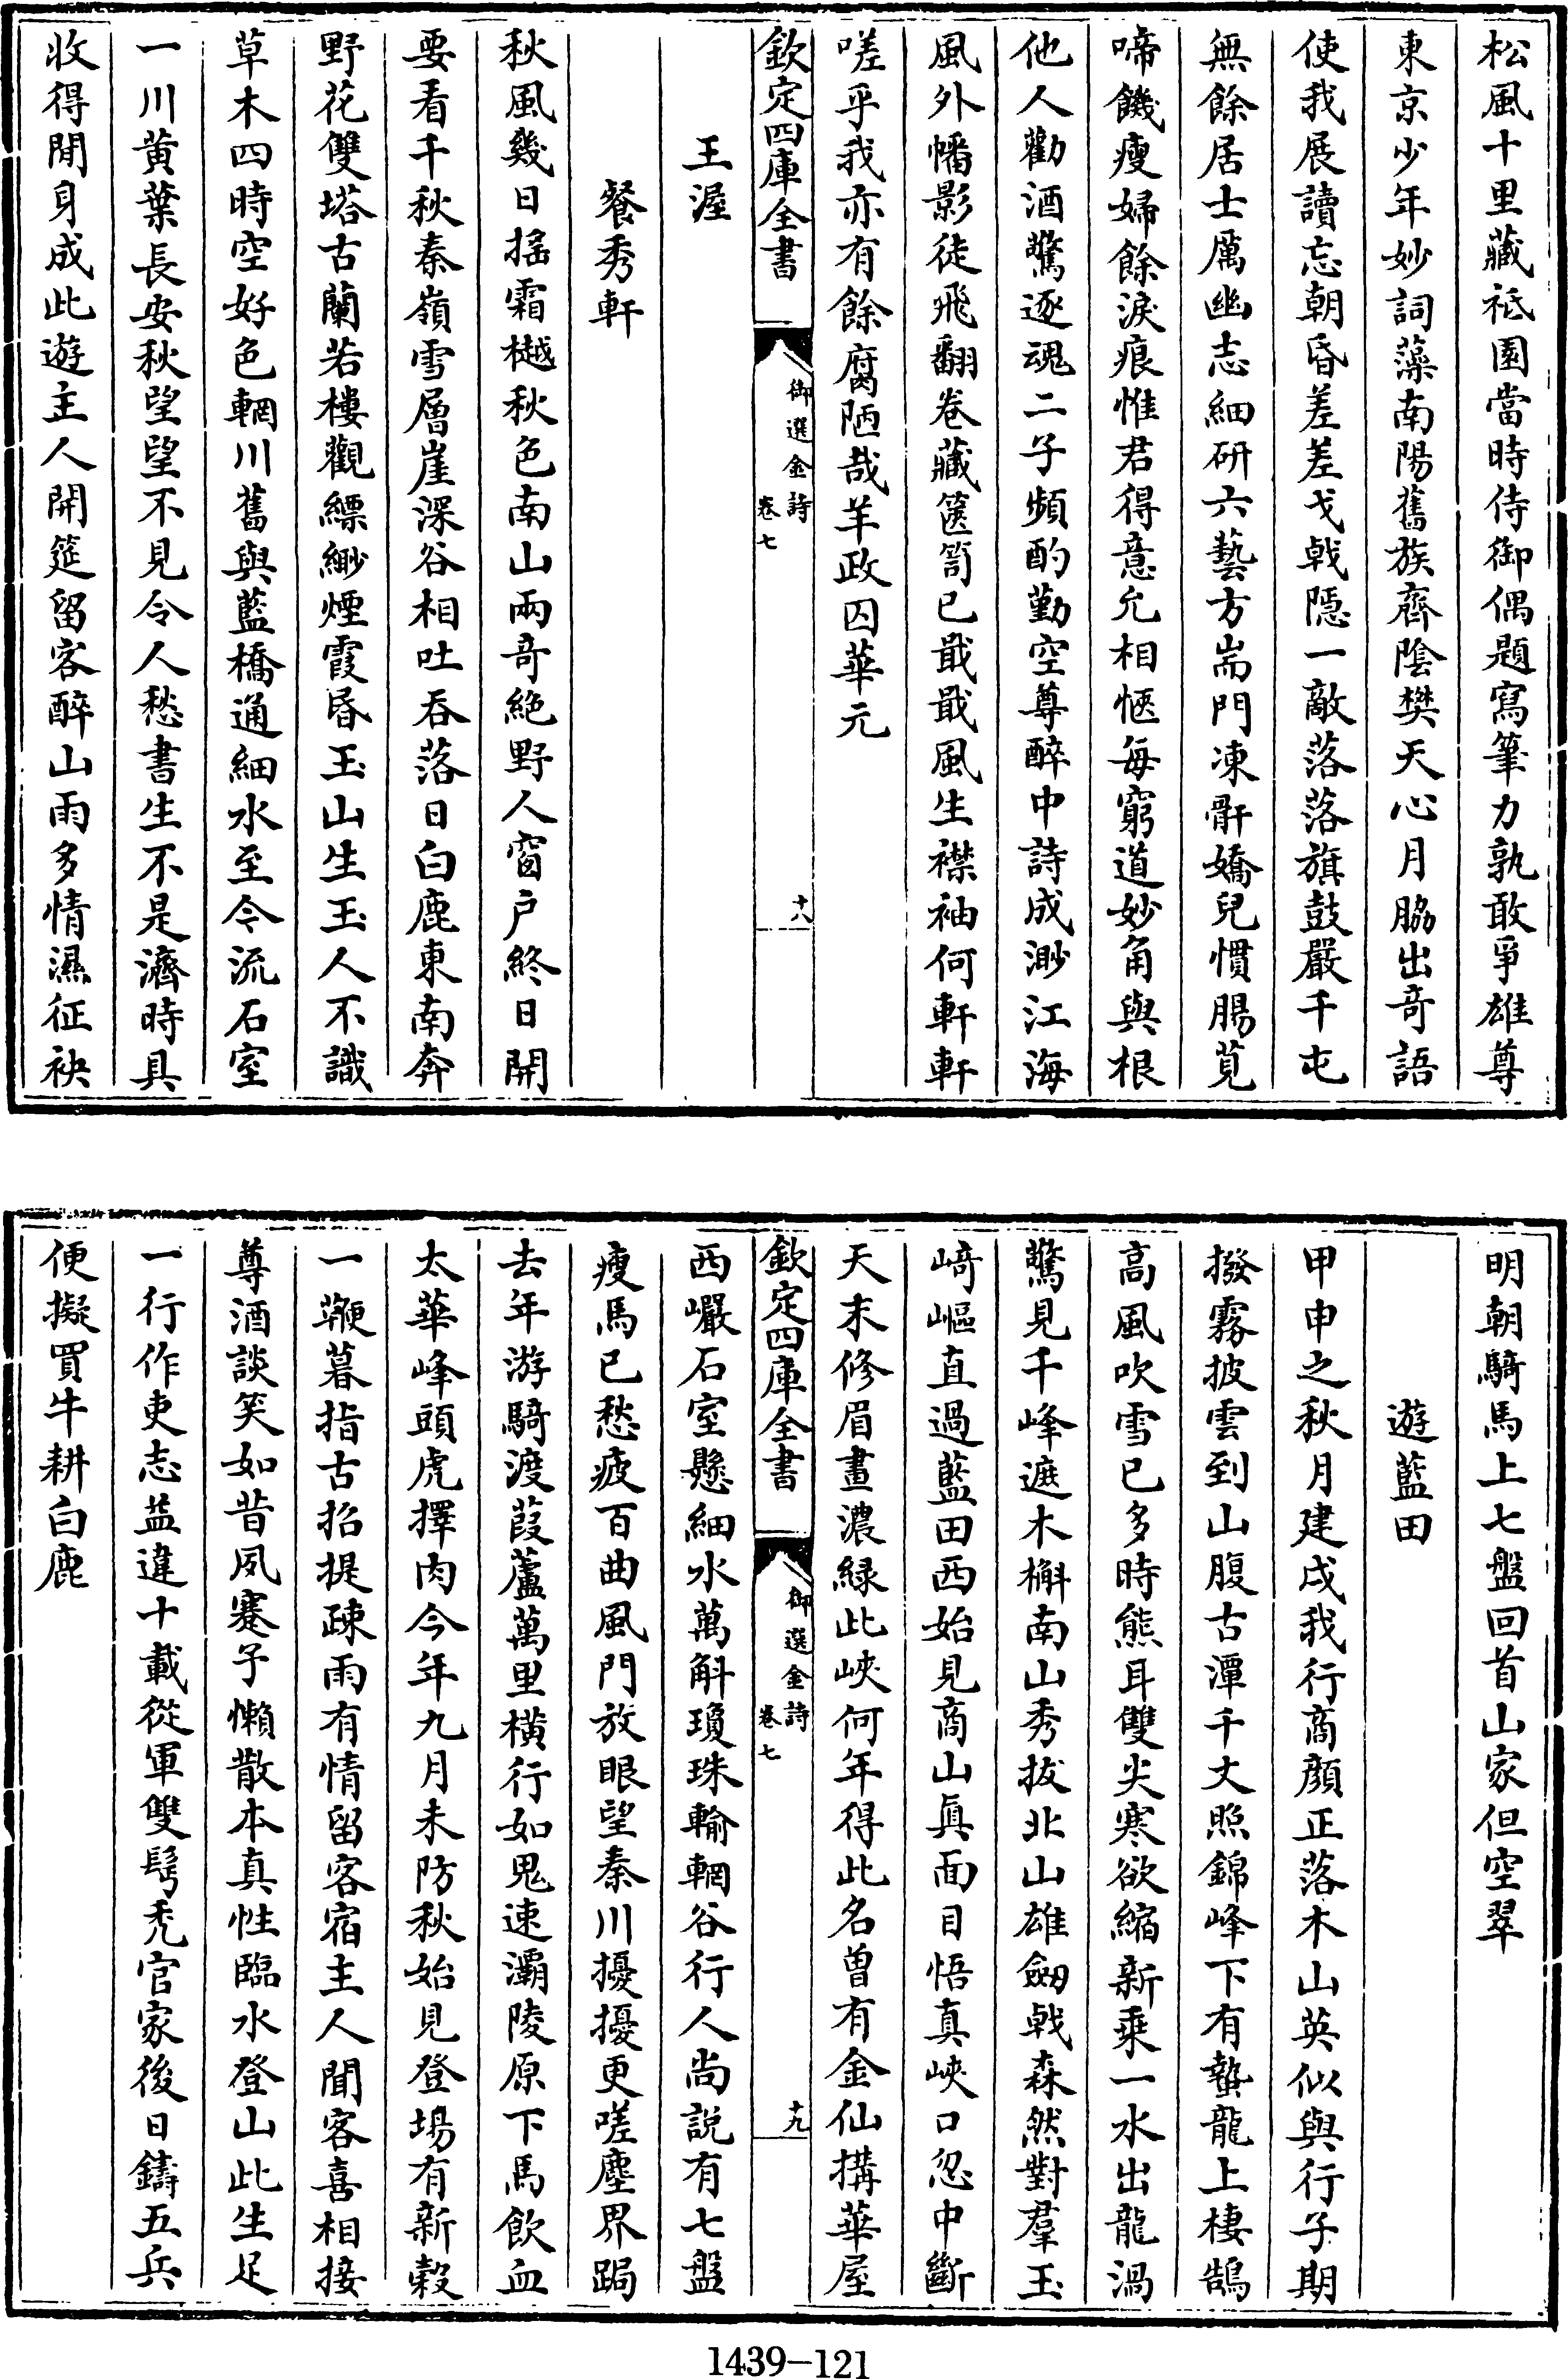 松風十里藏祇園當時侍御偶題寫筆力孰敢爭雄尊
東京少年妙詞藻南陽舊族齊陰樊天心月脇出奇語
使我展讀忘朝昏差差戈戟隱一敵落落旗鼓嚴千屯
無餘居士厲幽志細研六藝方耑門凍骭嬌兒慣腸莧
啼饑瘦婦餘淚痕惟君得意允相愜每窮道妙角與根
他人勸酒驚逐魂二子頻酌勤空尊醉中詩成渺江海
風外幡影徒飛翻卷藏篋笥已戢戢風生襟袖何軒軒
嗟乎我亦有餘腐陋哉羊政囚華元
欽定四庫全書
御選金詩
卷七
十八
王渥
餐秀軒
秋風幾日搖霜樾秋色南山兩奇絶野人窗户終日開
要看千秋秦嶺雪層崖深谷相吐吞落日白鹿東南奔
野花雙塔古蘭若樓觀縹緲煙霞昏玉山生玉人不識
草木四時空好色輞川舊與藍橋通細水至今流石室
一川黄葉長安秋望望不見令人愁書生不是濟時具
收得閒身成此遊主人開筵留客醉山雨多情濕征袂
明朝騎馬上七盤回首山家但空翠
遊藍田
甲申之秋月建戌我行商顏正落木山英似與行子期
撥霧披雲到山腹古潭千丈照錦峰下有蟄龍上棲鵠
高風吹雪已多時熊耳雙尖寒欲縮新乘一水出龍渦
驚見千峰遮木槲南山秀拔北山雄劒戟森然對羣玉
﨑嶇直過藍田西始見商山眞面目悟真峽口忽中斷
天末修眉畫濃緑此峽何年得此名曽有金仙搆華屋
欽定四庫全書
御選金詩
卷七
十九
西巖石室懸細水萬斛瓊珠輸輞谷行人尚説有七盤
瘦馬已愁疲百曲風門放眼望秦川擾擾更嗟塵界跼
去年游騎渡葭蘆萬里横行如鬼速灞陵原下馬飲血
太華峰頭虎擇肉今年九月未防秋始見登場有新榖
一鞭暮指古招提疎雨有情留客宿主人聞客喜相接
尊酒談笑如昔夙蹇予懶散本真性臨水登山此生足
一行作吏志益違十載從軍雙髩禿官家後日鑄五兵
便擬買牛耕白鹿
1439-121